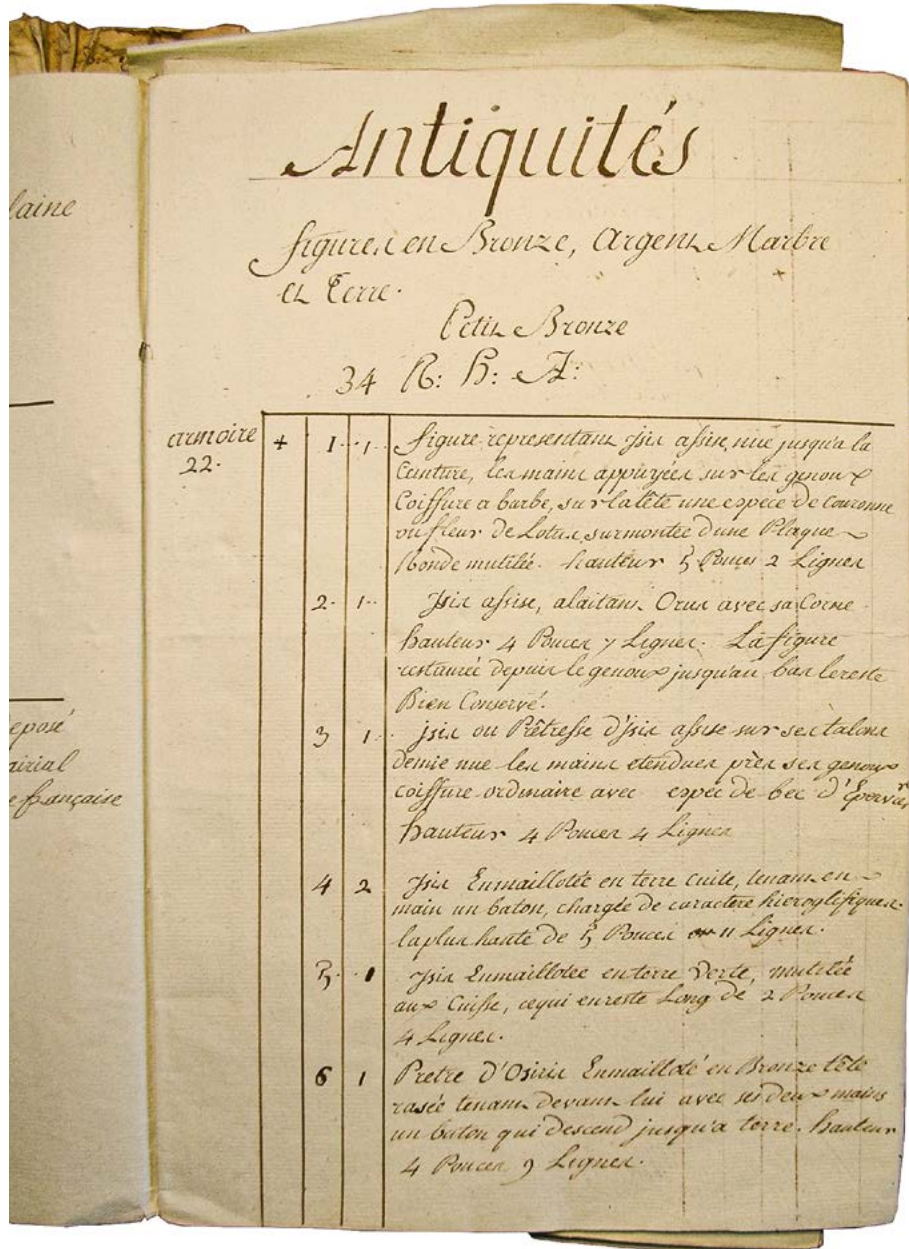 laine
eposé
airial
e française
Antiquités
figures en Bronze, Argent Marbre
et Terre.
Petit Bronze
34 R: H: A:
armoire
22.
+ 1 1 figure representant Isis assise, nue jusqu'a la
Ceinture, les mains appuyées sur les genoux
Coiffure a barbe, sur la tête une espece de couronne
ou fleur de Lotus, surmontée d'une Plaque
Ronde mutilée. hauteur 5 Pouces 2 Lignes
2. 1. Isis assise, alaitant Orus avec sa Corne
hauteur 4 Pouces 7 Lignes. La figure
restaurée depuis le genoux jusqu'au bas le reste
Bien Conservé.
3 1 jsis ou Prêtresse d'jsis assise sur ses talons
demie nue les mains etendues près ses genoux
coiffure ordinaire avec espéc de bec d'Epervier
hauteur 4 Pouces 4 Lignes
4 2 Isis Enmaillotée en terre cuite, tenant en
main un baton, chargée de caractere hieroglifiques.
la plus haute de 5 Pouces 11 Lignes.
5. 1 Isis Enmaillotée en terre Verte, mutilée
aux Cuisse, ce qui en reste Long de 2 Pouces
4 Lignes.
6 1 Pretre d'Osiris Enmailloté en Bronze tête
rasée tenant devant lui avec ses deux mains
un baton qui descend jusqu'a terre. hauteur
4 Pouces 9 Lignes.